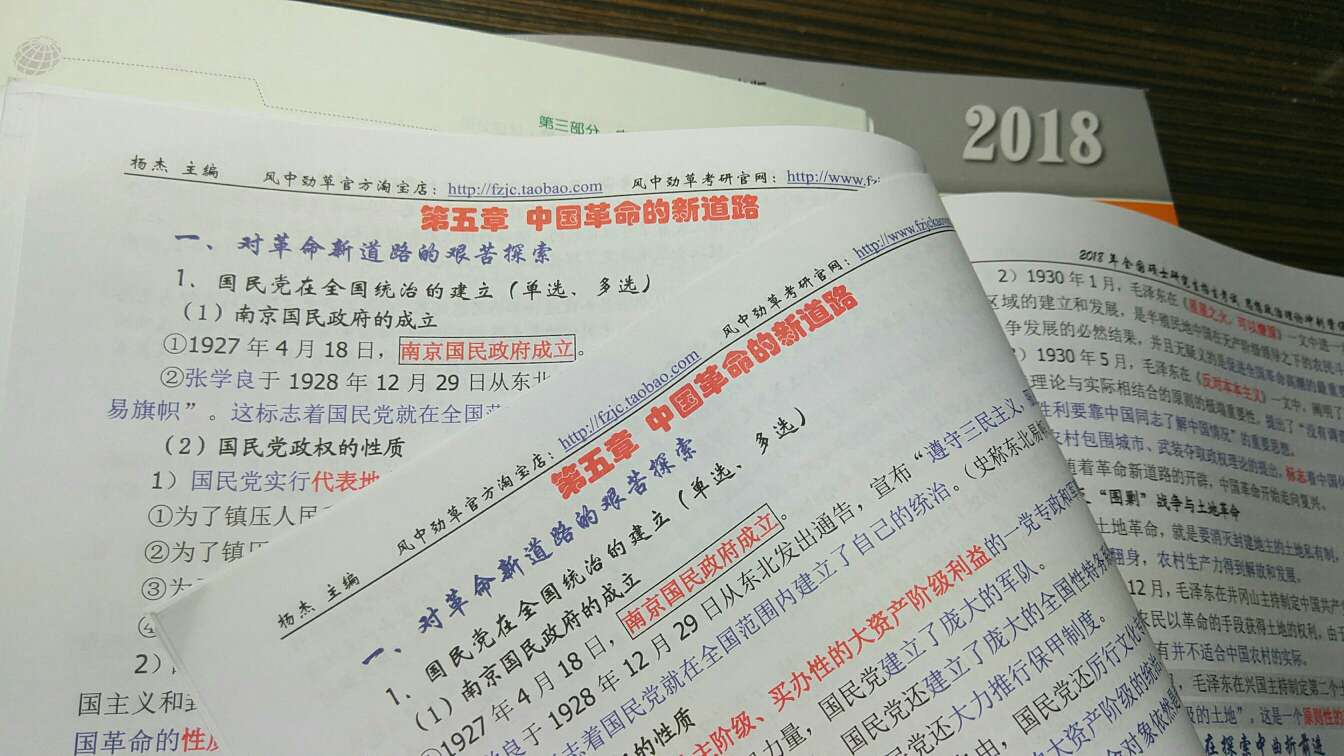 第三部分
2018
杨杰 主编 风中劲草官方淘宝店：http://fzjc.taobao.com 风中劲草考研官网：http://www.fz
第五章 中国革命的新道路
一、对革命新道路的艰苦探索
1、国民党在全国统治的建立（单选、多选）
（1）南京国民政府的成立
①1927年4月18日，南京国民政府成立。
②张学良于1928年12月29日从东北
易旗帜”。这标志着国民党就在全国范
（2）国民党政权的性质
1）国民党实行代表地
①为了镇压人民
②为了镇压
③为
④
2）
国主义和
国革命的性
杨杰 主编 风中劲草官方淘宝店：http://fzjc.taobao.com 风中劲草考研官网：http://www.fzjckao
第五章 中国革命的新道路
一、对革命新道路的艰苦探索
1、国民党在全国统治的建立（单选、多选）
（1）南京国民政府的成立
①1927年4月18日，南京国民政府成立。
学良于1928年12月29日从东北发出通告，宣布“遵守三民主义，
志着国民党就在全国范围内建立了自己的统治。（史称东北易帜
的性质
主阶级、买办性的大资产阶级利益的一党专政和军
力量，国民党建立了庞大的军队。
国民党还建立了庞大的全国性特务
党还大力推行保甲制度。
国民党还厉行文化
大资产阶级的统治
对象依然是
2018年全国硕士研究生招生考试 思想政治理论冲刺
2）1930年1月，毛泽东在《星星之火，可以燎原》一文中进一
区域的建立和发展，是半殖民地中国在无产阶级领导之下的农民斗
争发展的必然结果，并且无疑义的是促进全国革命高潮的最重要
）1930年5月，毛泽东在《反对本本主义》一文中，阐明
理论与实际相结合的原则的极端重要性，提出了“没有调
胜利要靠中国同志了解中国情况”的重要思想。
农村包围城市、武装夺取政权理论的提出，标志着中国
随着革命新道路的开辟，中国革命开始走向复兴。
“围剿”战争与土地革命
土地革命，就是要消灭封建地主的土地私有制，
翻身，农村生产力得到解放和发展。
12月，毛泽东在井冈山主持制定中国共产
农民以革命的手段获得土地的权利，由于
有并不适合中国农村的实际。
，毛泽东在兴国主持制定第二个
级的土地”，这是一个原则性的
在探索中曲折前进